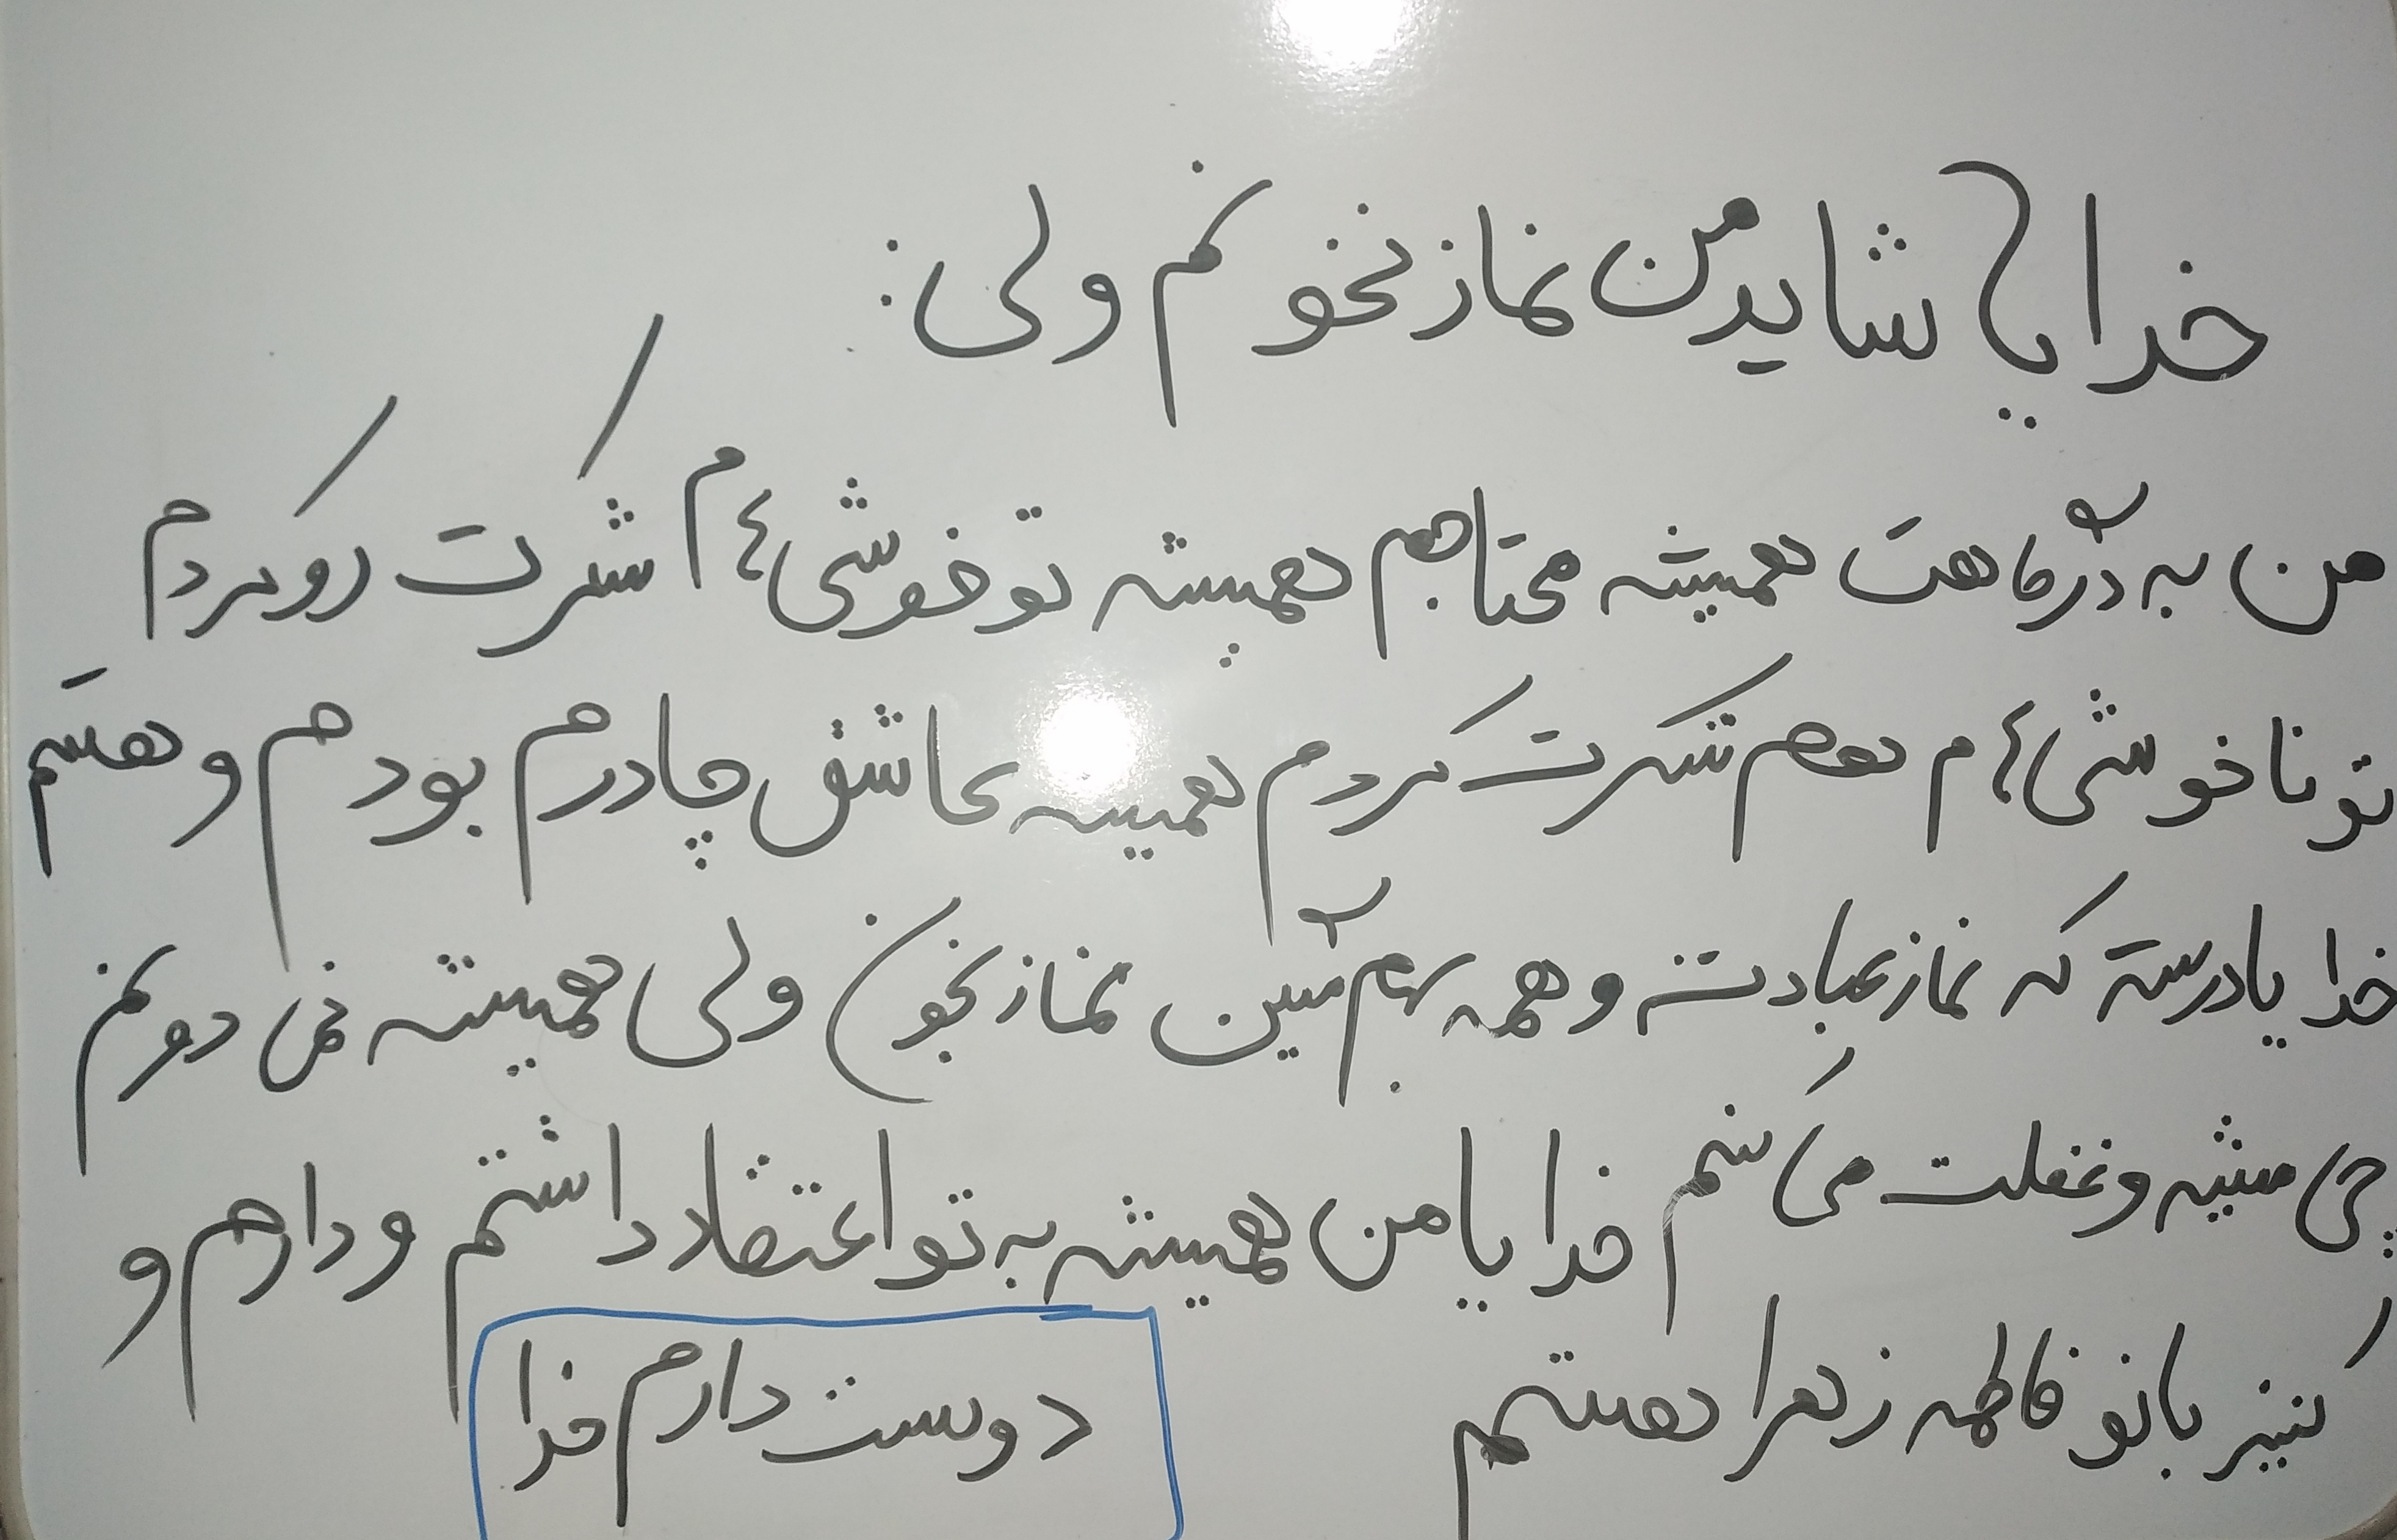 خدایا شاید من نماز نخونم ولی:
من به درگاهت همیشه محتاجم همیشه تو خوشی ام شکرت رو کردم
تو ناخوشی ام هم شکرت کردم همیشه عاشق چادرم بودم و هستم
خدایا درسته که نماز عبادته و همه بهم میگین نماز بخون ولی همیشه نمی دونم
چی میشه و غفلت می کنم خدایا من همیشه به تو اعتقاد داشتم و دارم و
کنیز بانو فاطمه زهرا هستم
دوست دارم خدا